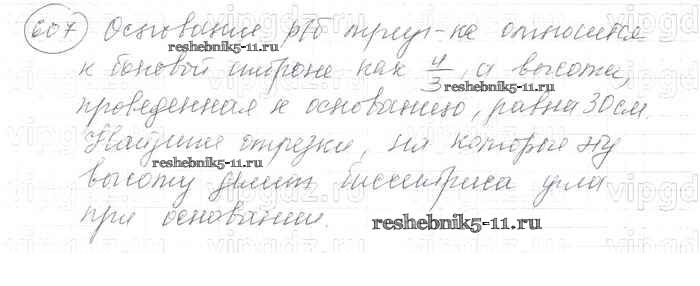 607 Основание р/б треуг-ка относится
к боковой стороне как 4/3, а высота,
проведенная к основанию, равна 30 см.
Найдите отрезки, на которые эту
высоту делит биссектриса угла
при основании.
reshebnik5-11.ru
reshebnik5-11.ru
reshebnik5-11.ru
reshebnik5-11.ru